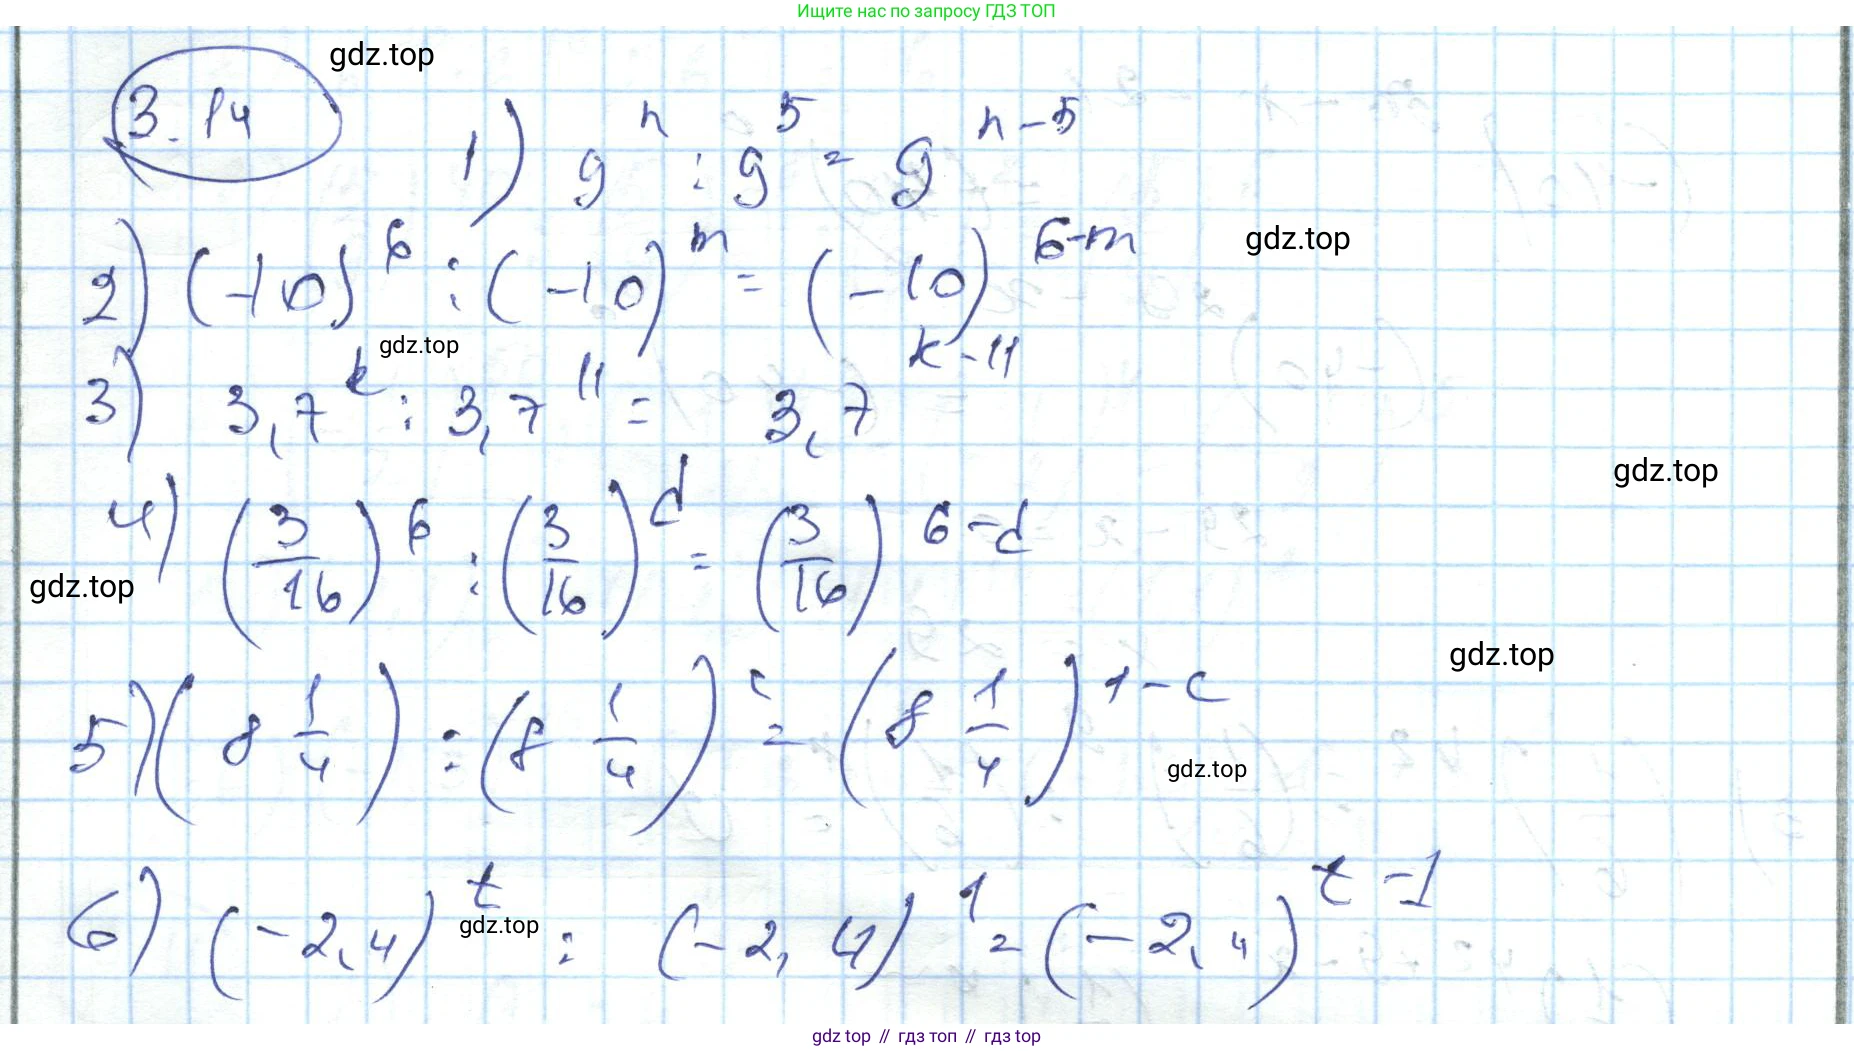 Ищите нас по запросу ГДЗ ТОП
gdz.top
3.14
1) 9^n : 9^5 = 9^{n-5}
2) (-10)^6 : (-10)^m = (-10)^{6-m}
gdz.top
gdz.top
3) 3,7^k : 3,7^{11} = 3,7^{k-11}
gdz.top
4) (3/16)^6 : (3/16)^d = (3/16)^{6-d}
gdz.top
gdz.top
5) (8 1/4) : (8 1/4)^c = (8 1/4)^{1-c}
gdz.top
6) (-2,4)^t : (-2,4)^1 = (-2,4)^{t-1}
gdz.top
gdz top // гдз топ // gdz top